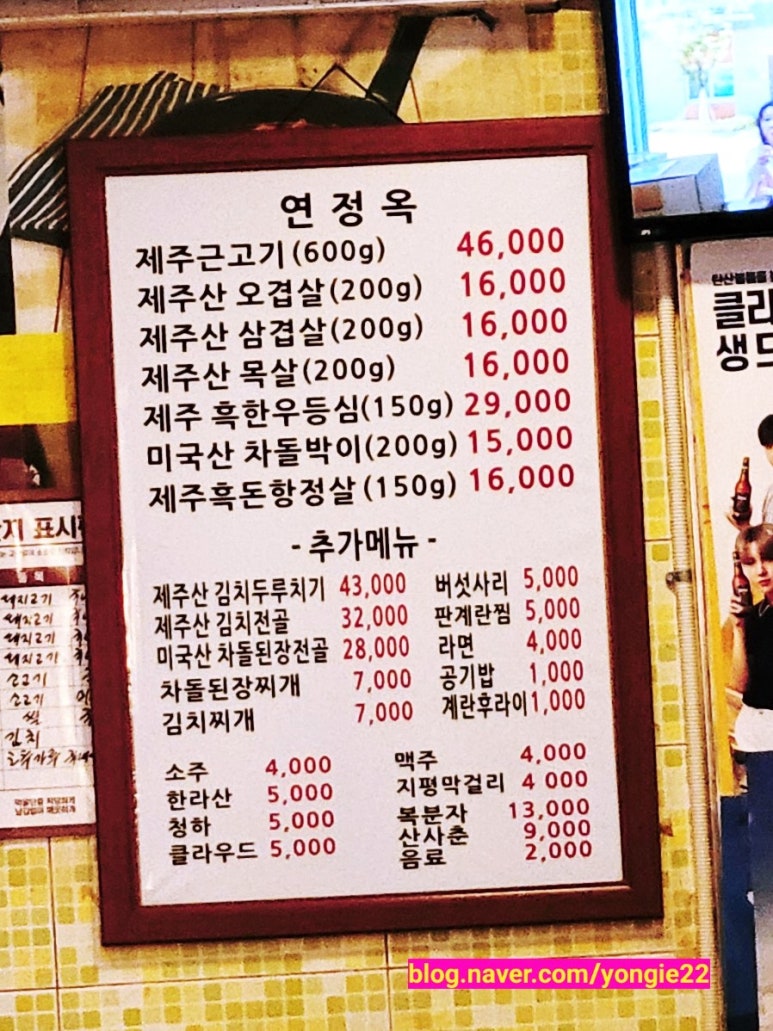 연정옥
제주근고기(600g) 46,000
제주산 오겹살(200g) 16,000
제주산 삼겹살(200g) 16,000
제주산 목살(200g) 16,000
제주 흑한우등심(150g) 29,000
미국산 차돌박이(200g) 15,000
제주흑돈항정살(150g) 16,000
- 추가메뉴 -
제주산 김치두루치기 43,000
제주산 김치전골 32,000
미국산 차돌된장전골 28,000
차돌된장찌개 7,000
김치찌개 7,000
버섯사리 5,000
판계란찜 5,000
라면 4,000
공기밥 1,000
계란후라이 1,000
소주 4,000
한라산 5,000
청하 5,000
클라우드 5,000
맥주 4,000
지평막걸리 4 000
복분자 13,000
산사춘 9,000
음료 2,000
지 표시
돼지고기
돼지고기
돼지고기
돼지고기
소고기
소고기
쌀
김치
클라
생드
blog.naver.com/yongie22